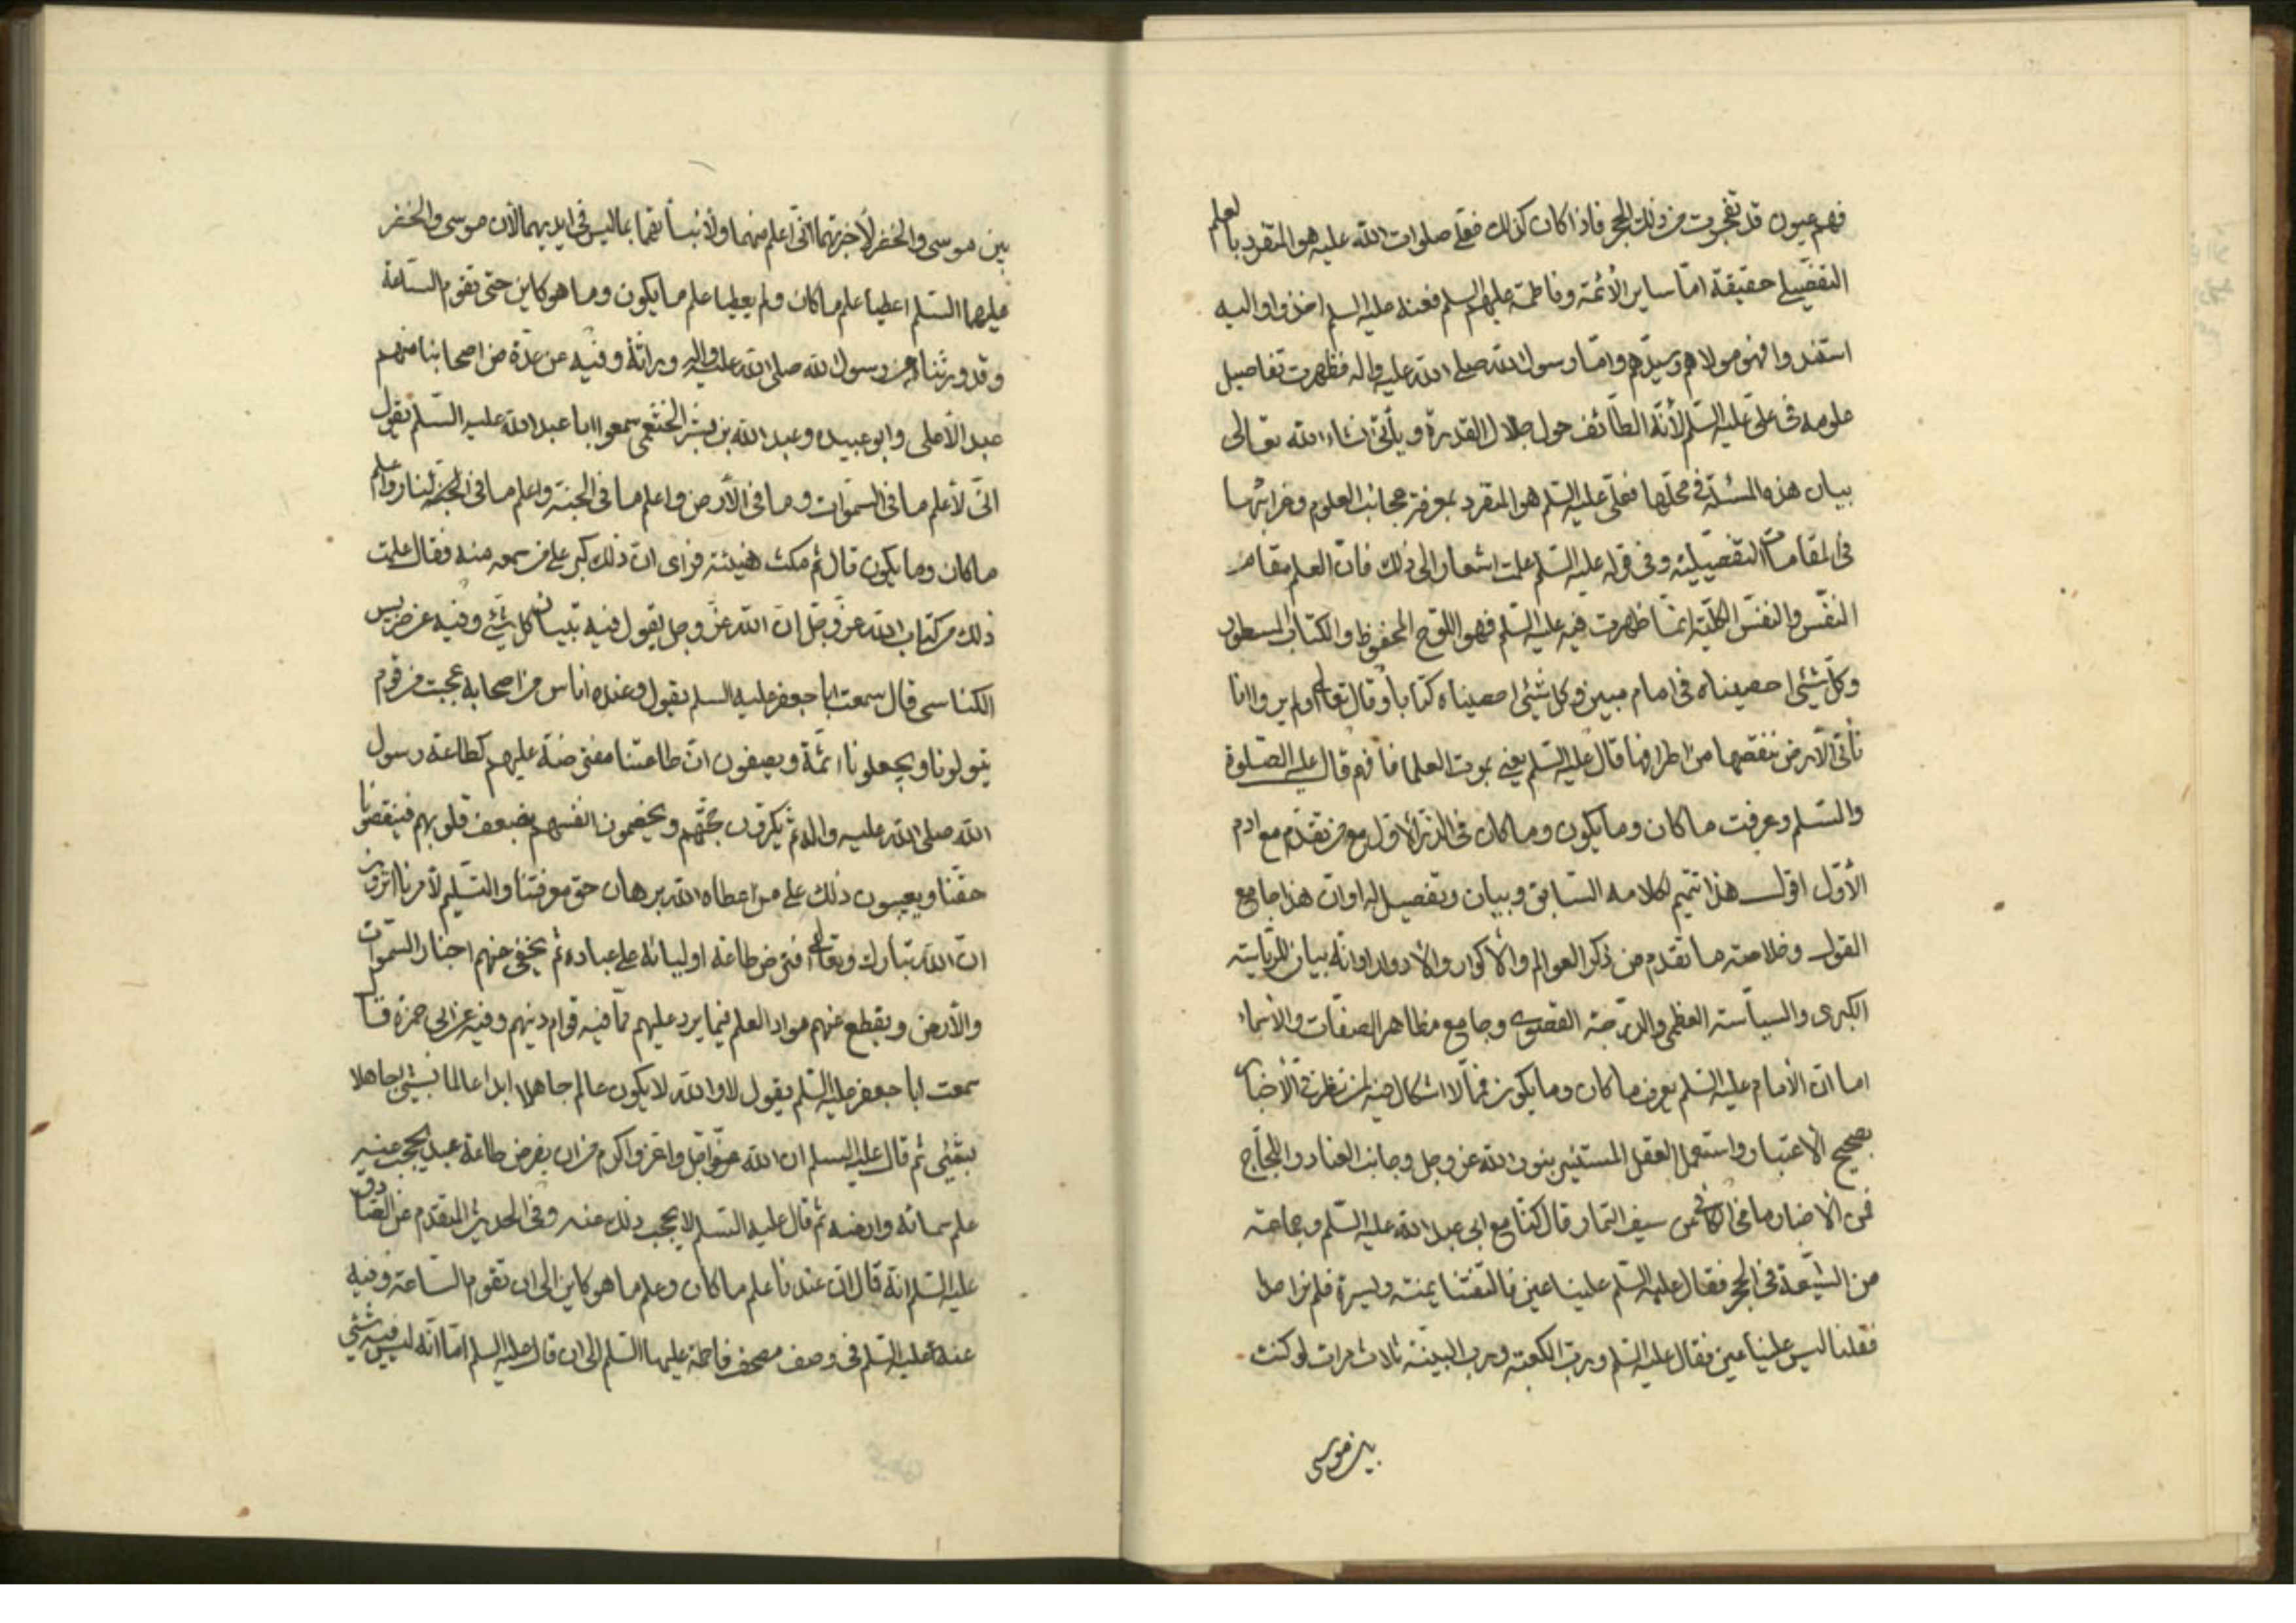 فهم عيون قد تفجرت من ذلك البحر فاذا كان كذلك فعلي صلوات الله عليه هو المتفرد بالعلم
التفصيلي حقيقة امّا ساير الأئمة وفاطمة عليهم السلم فعنه عليه السلم اخذوا واليه
استندوا فهو مولاهم وسيّدهم وامّا رسول الله صلى الله عليه واله فظهرت تفاصيل
علومه في علي عليه السّلم لأنّه الطائف حول جلال القدرة ويأتي انشاء الله تعالى
بيان هذه المسئلة في محلّها فعلي عليه السّلم هو المتفرد بمعرفة عجائب العلوم وغرائبها
في المقامات التفصيليّة وفي قوله عليه السّلم علمت اشعار الى ذلك فانّ العلم مقامه
النفس والنفس الكلّية انمّا ظهرت فيه عليه السّلم فهو اللّوح المحفوظ والكتاب المسطور
وكلّ شيئ احصيناه في امام مبين وكل شيئ احصيناه كتاباً وقال تعالى اولم يروا انا
نأتي الأرض ننقصها من اطرافها قال عليه السّلم يعني بموت العلما فافهم قال عليه الصّلوة
والسّلم وعرفت ما كان وما يكون وما كان في الذر الأول مع من تقدّم مع ادم
الأوّل اقول هذا تتميم لكلامه السّابق وبيان وتفصيل له او ان هذا جامع
القول وخلاصة ما تقدم من ذكر العوالم والأكوار والأدوار او انّه بيان للرّياسة
الكبرى والسياسة العظمى والدرجة القصوى وجامع مظاهر الصفات والأسماء
اما ان الأمام عليه السّلم يعرف ما كان وما يكون فمّا لا اشكال فيه لمن نظر في الأخبار
بصحيح الأعتبار واستعمل العقل المستنير بنور الله عز وجل وجانب العناد واللجاج
فمن الأخبار ما في الكافي عن سيف التمار قال كنّا مع ابي عبد الله عليه السّلم وجماعة
من الشّيعة في الحجر فقال عليه السّلم علينا عين فالتفتنا يمنة ويسرة فلم نر احدا
فقلنا ليس علينا عين فقال عليه السّلم ورب الكعبة ورب البنيّة ثلاث مرات لو كنت
بين موسى
بين موسى والخضر لأخبرتهما انّي اعلم منهما ولأنبأتهما بما ليس في ايديهما لأن موسى والخضر
عليهما السّلم اعطيا علم ما كان ولم يعطيا علم ما يكون وما هو كاين حتى تقوم السّاعة
وقد ورثناه من رسول الله صلى الله عليه واله وراثة وفيه عن عدّة من اصحابنا منهم
عبد الأعلى وابو عبيدة وعبد الله بن بشر الخثعمي سمعوا ابا عبد الله عليه السّلم يقول
انّي لأعلم ما في السّموات وما في الأرض واعلم ما في الجنة واعلم ما في النار واعلم
ما كان وما يكون قال ثم مكث هنيئة فراى ان ذلك كبر على من سمعه منه فقال علمت
ذلك من كتاب الله عز وجل ان الله عز وجل يقول فيه تبيان كل شيئ وفيه عن ضريس
الكناسي قال سمعت ابا جعفر عليه السلم يقول وعنده اناس من اصحابه عجبت من قوم
يتولونا ويجعلونا ائمّة ويصفون ان طاعتنا مفترضة عليهم كطاعة رسول
الله صلى الله عليه واله ثم يكسرون حجّتهم ويخصمون انفسهم بضعف قلوبهم فينقصونا
حقّنا ويعيبون ذلك على من اعطاه الله برهان حق معرفتنا والتسليم لأمرنا اترون
ان الله تبارك وتعالى افترض طاعة اوليائه على عباده ثم يخفي عنهم اخبار السّموات
والأرض ويقطع عنهم مواد العلم فيما يرد عليهم ممّا فيه قوام دينهم وفيه عن ابي حمزة قال
سمعت ابا جعفر عليه السّلم يقول لا والله لا يكون عالم جاهلا ابدا عالما بشيئ جاهلا
بشيئ ثم قال عليه السلم ان الله اجلّ واعز واكرم من ان يفرض طاعة عبد يحجب عنه
علم سمائه وارضه ثم قال عليه السّلم لا يحجب ذلك عنه وفي الحديث المتقدم عن الصّادق
عليه السّلم انّه قال ان عندنا علم ما كان وعلم ما هو كاين الى ان تقوم السّاعة وفيه
عنه عليه السّلم في وصف مصحف فاطمة عليها السّلم الى ان قال عليه السلم امّا انّه ليس فيه شيئ